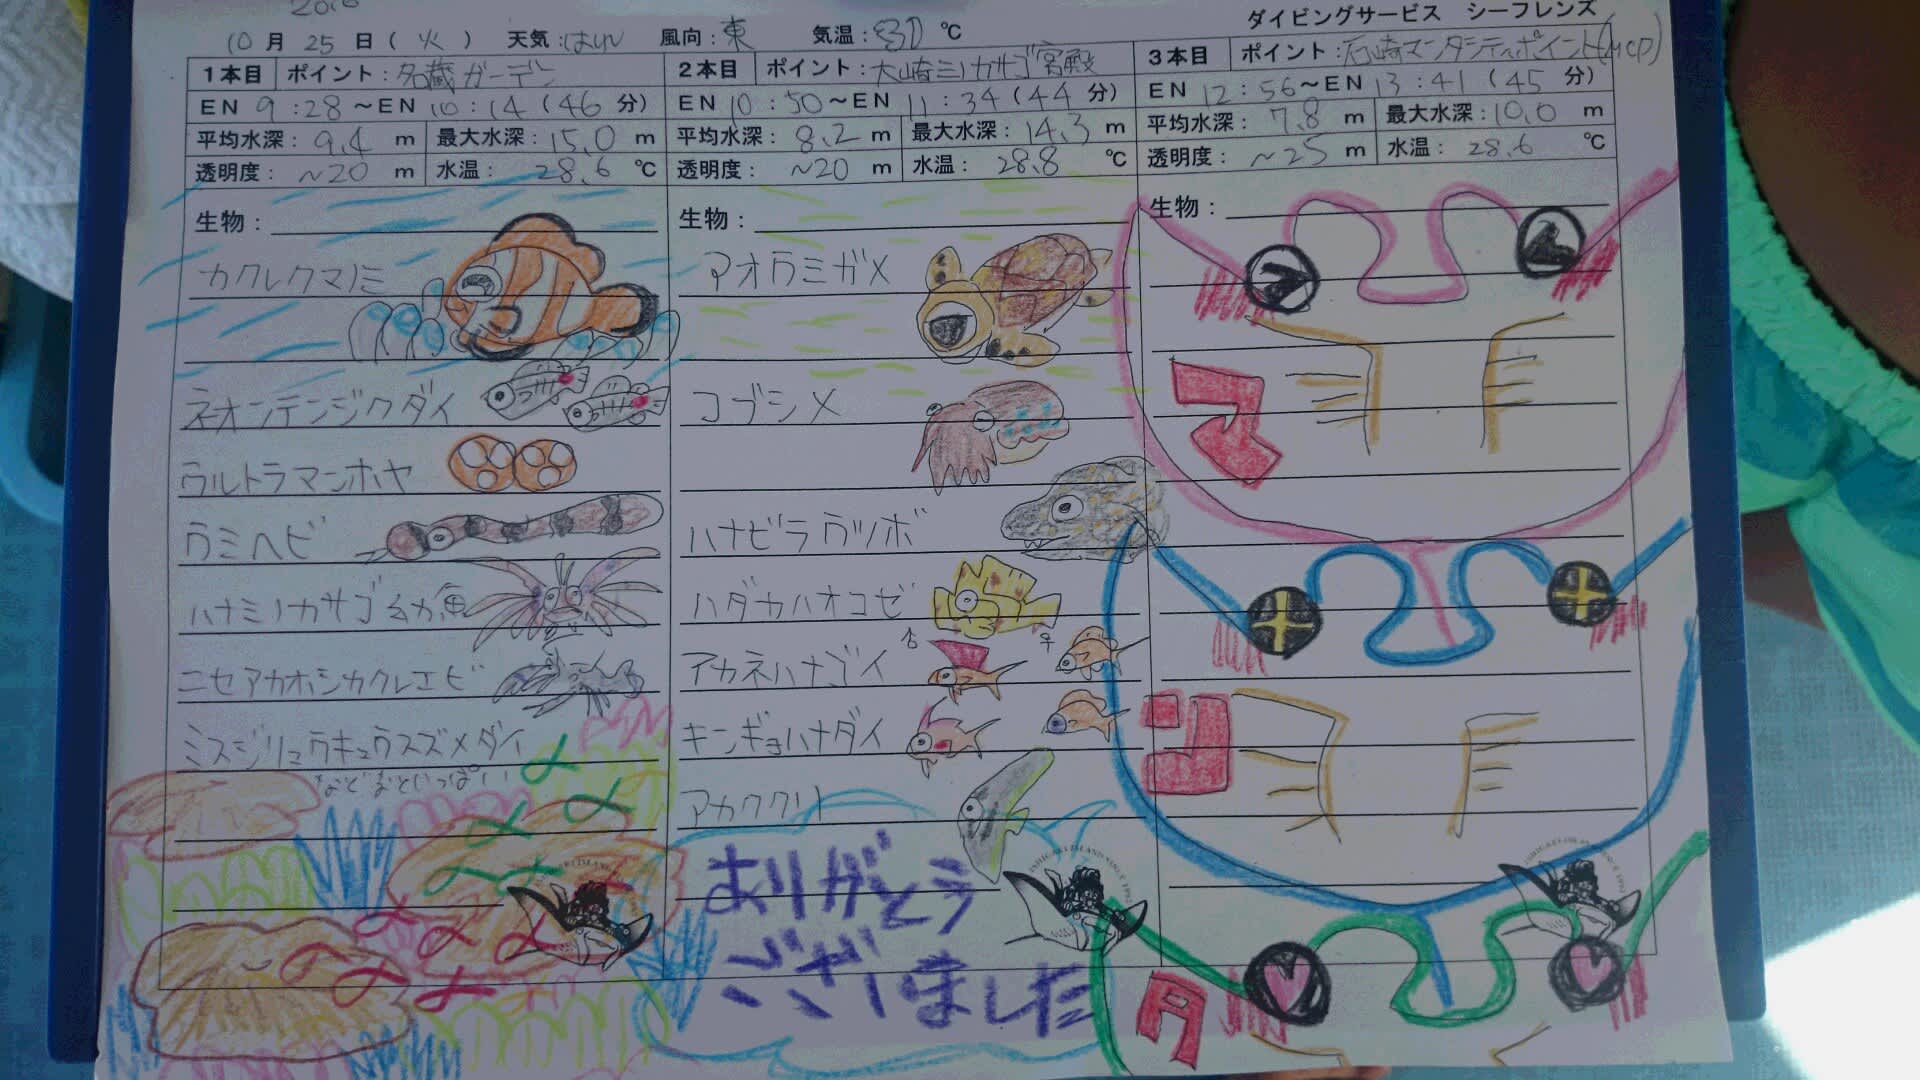 ダイビングサービス シーフレンズ
10月25日(火) 天気:はれ 風向:東 気温:30 ℃
1本目 ポイント:名蔵ガーデン
EN 9:28~EN 10:14(46分)
平均水深:9.4 m 最大水深:15.0 m
透明度:~20 m 水温:28.6 ℃
生物:
カクレクマノミ
ネオンテンジクダイ
ウルトラマンホヤ
ウミヘビ
ハナミノカサゴ幼魚
ニセアカホシカクレエビ
ミスジリュウキュウスズメダイ
などなどいっぱい
2本目 ポイント:大崎ミノカサゴ宮殿
EN 10:50~EN 11:34(44分)
平均水深:8.2 m 最大水深:14.3 m
透明度:~20 m 水温:28.8 ℃
生物:
アオウミガメ
コブシメ
ハナビラウツボ
ハダカハオコゼ
アカネハナゴイ
♂ ♀
キンギョハナダイ
アカククリ
ありがとう
ございました
3本目 ポイント:石崎マンタシティポイント(MCP)
EN 12:56~EN 13:41(45分)
平均水深:7.8 m 最大水深:10.0 m
透明度:~25 m 水温:28.6 ℃
生物:
マ
ン
タ